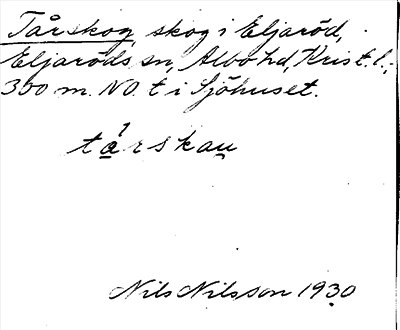 Tårskog, skog i Eljaröd,
Eljaröds sn, Albo hd, Krist. l.;
300 m. NO. t i Sjöhuset.
ta̱ꞌrskau̱
Nils Nilsson 1930